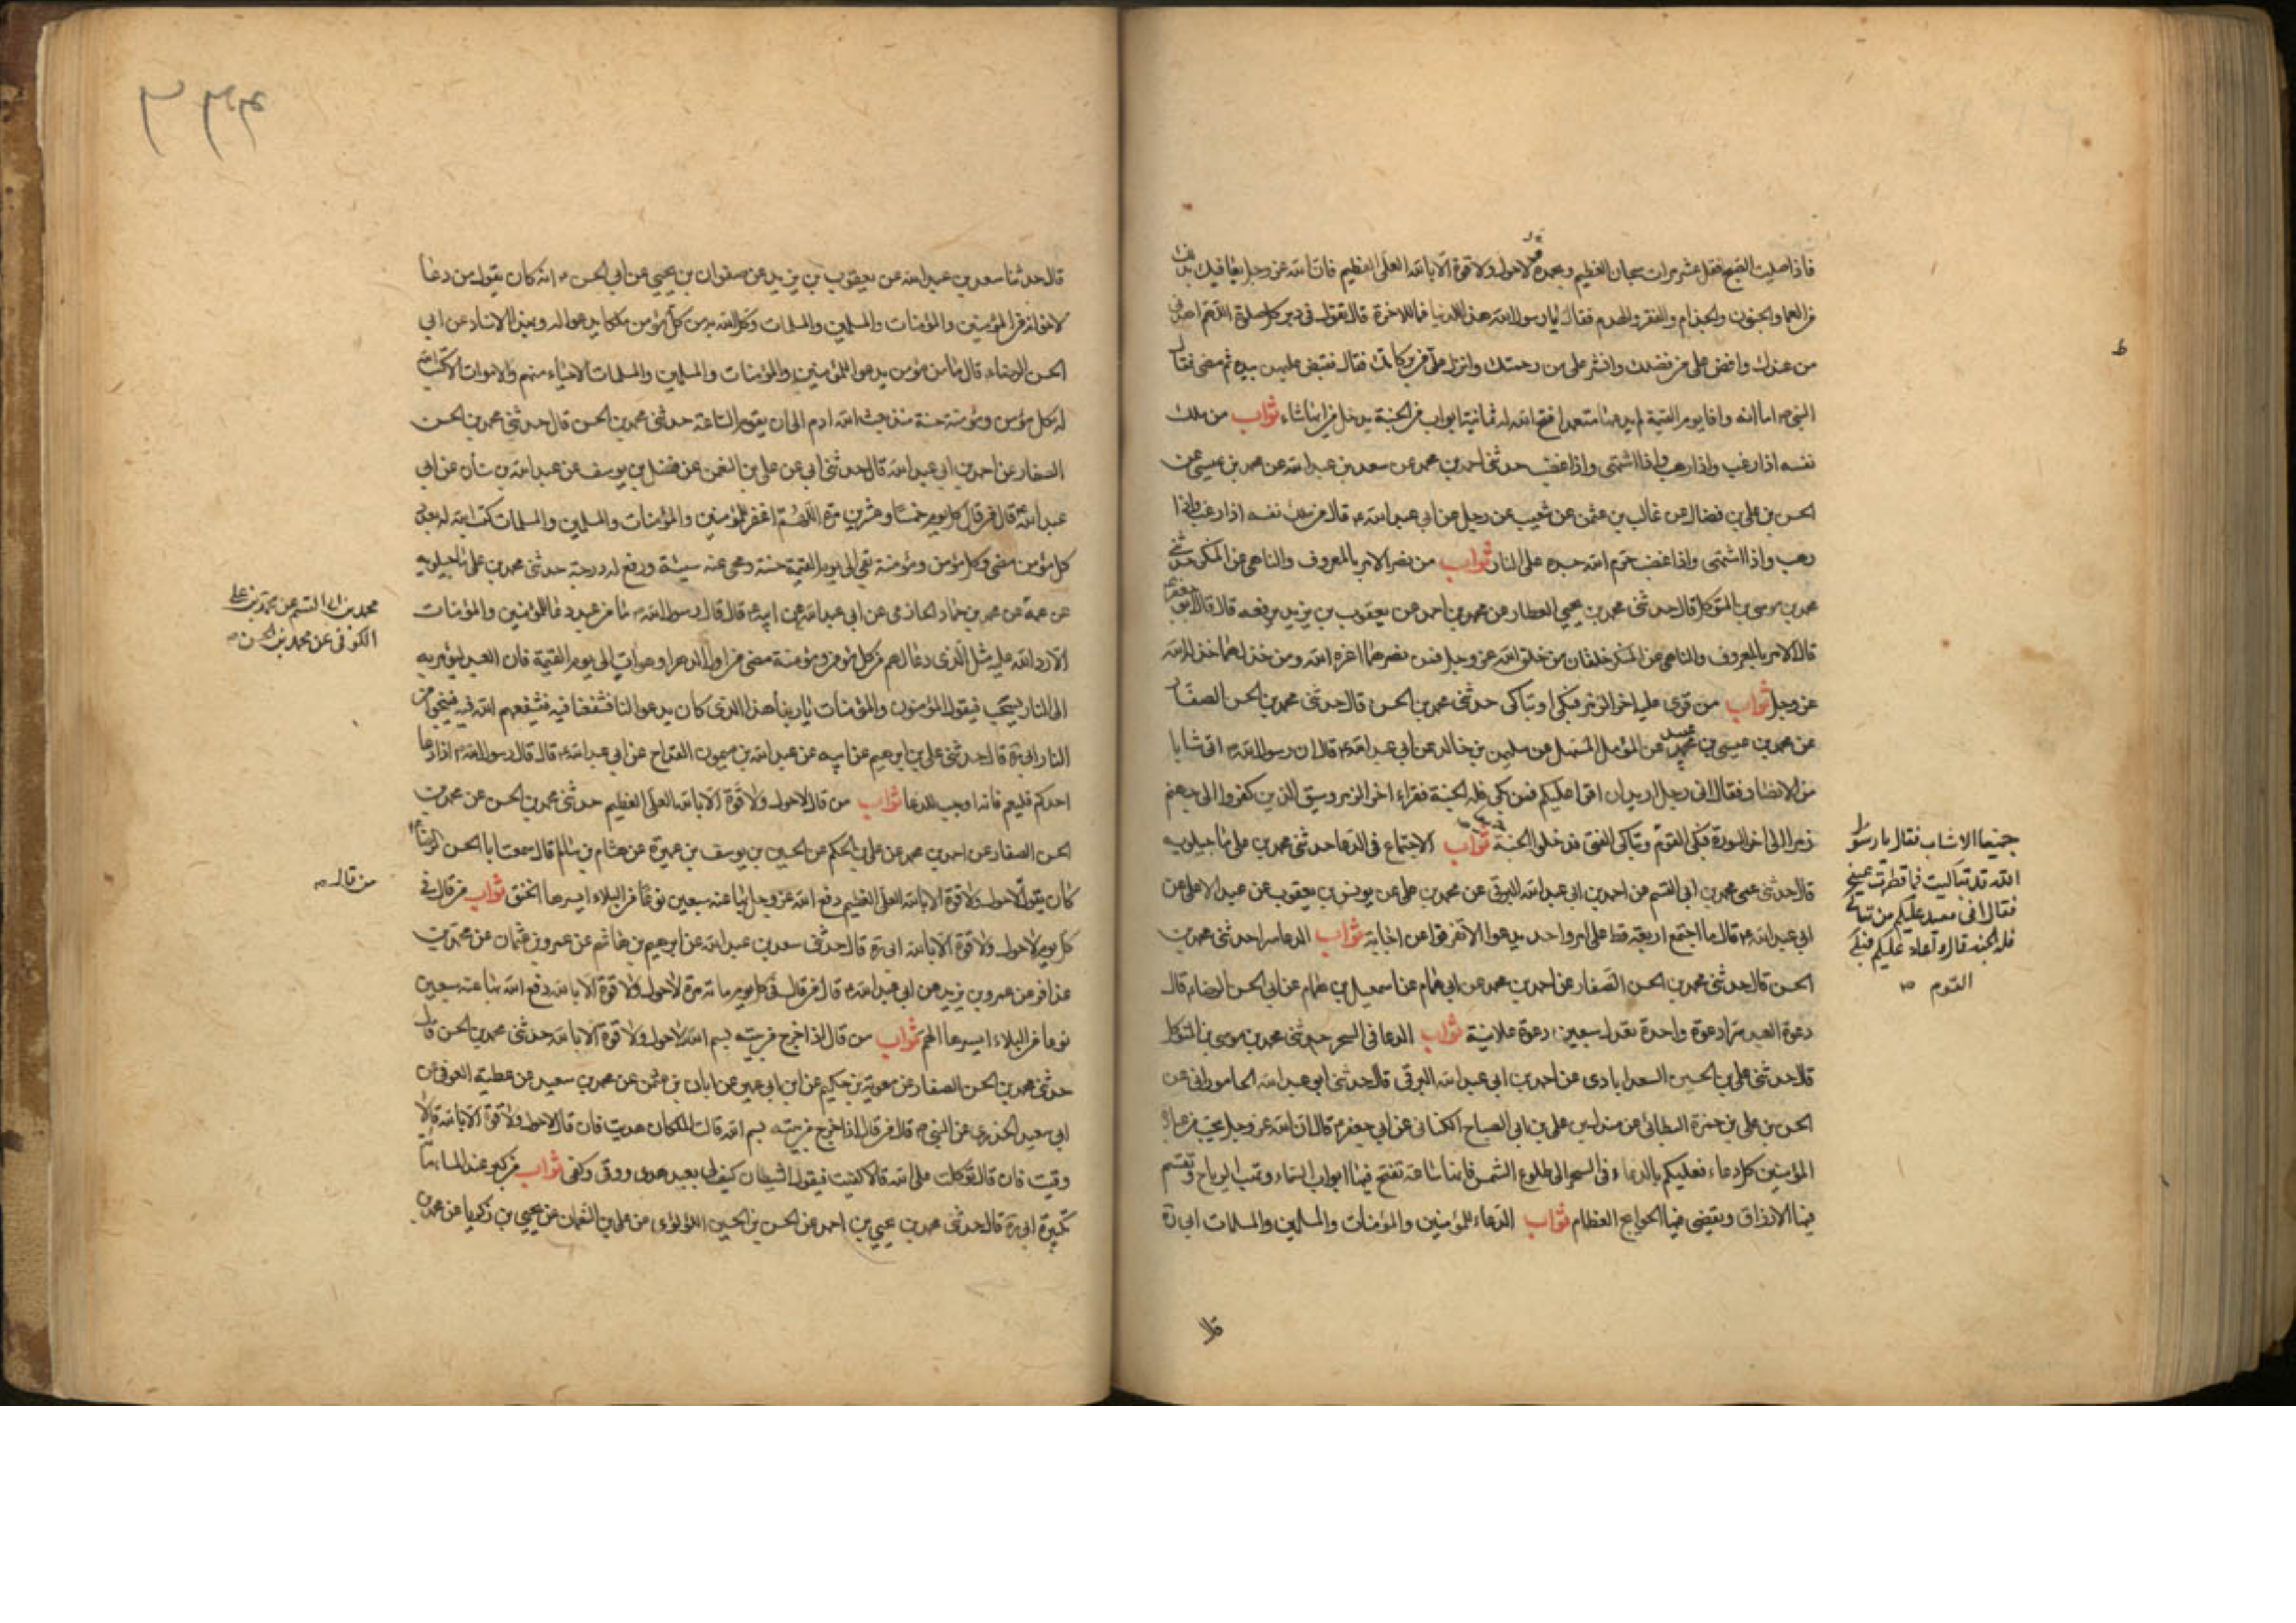 فاذا صليت الصبح فقل عشر مرات سبحان العظيم وبحمده لاحول ولا قوة الا بالله العلى العظيم فان الله عز وجل يعافيك بذلك
من العما والجنون والجذام والفقر والهدم فقال يا رسول الله هذا للدنيا فما للاخرة قال تقول فى دبر كل صلوة اللهم اهدنى
من عندك وافض على من فضلك وانشر على من رحمتك وانزل على من بركاتك قال فقبض عليهن بيده ثم مضى فقال
النبى ص اما انه وافا يوم القيمة لم يدعها متعمدا فتح الله له ثمانية ابواب من الجنة يدخل من ايها شاء ثواب من ملك
نفسه اذا رغب واذا رهب واذا اشتهى واذا غضب حدثنى احمد بن محمد عن سعد بن عبد الله عن محمد بن عيسى عن
الحسن بن على بن فضال عن غالب بن عثمن عن شعيب عن رجل عن ابى عبد الله ع قال من ملك نفسه اذا رغب واذا
رهب واذا اشتهى واذا غضب حرم الله جسده على النار ثواب من نصر الامر بالمعروف والناهى عن المنكر حدثنى
محمد بن موسى بن المتوكل قال حدثنى محمد بن يحيى العطار عن محمد بن احمد عن يعقوب بن يزيد يرفعه قال قال ابو جعفر ع
قال الامر بالمعروف والناهى عن المنكر خلقان من خلق الله عز وجل فمن نصرهما اعزه الله ومن خذلهما خذله الله
عز وجل ثواب من قرى عليه اخر الزمر فبكى او تباكى حدثنى محمد بن الحسن قال حدثنى محمد بن الحسن الصفار
عن محمد بن عيسى بن عبيد عن المؤمل المستهل عن سليمن بن خالد عن ابى عبد الله ع قال ان رسول الله ص اتى شبابا
من الانصار فقال انى رجل اريد ان اقرا عليكم فمن بكى فله الجنة فقراء اخر الزمر وسيق الذين كفروا الى جهنم
زمرا الى اخر السورة فبكى القوم وتباكى الفتى فدخلوا الجنة ثواب الاجتماع فى الدعا حدثنى محمد بن على ماجيلويه
قال حدثنى عمى محمد بن ابى القسم عن احمد بن ابى عبد الله البرقى عن محمد بن على عن يونس بن يعقوب عن عبد الاعلى عن
ابى عبد الله ع قال ما اجتمع اربعة قط على امر واحد يدعوا الا تفرقوا عن اجابة ثواب الدعا سرا حدثنى محمد بن
الحسن قال حدثنى محمد بن الحسن الصفار عن احمد بن محمد عن ابى همام عن اسمعيل بن همام عن ابى الحسن الرضاء قال
دعوة العبد سرا دعوة واحدة تعدل سبعين دعوة علانية ثواب الدعا فى السحر حدثنى محمد بن موسى بن المتوكل
قال حدثنى على بن الحسين السعدابادى عن احمد بن ابى عبد الله البرقى قال حدثنى ابو عبد الله الجامورانى عن
الحسن بن على بن حمزة البطائى عن مندل بن على بن ابى الصباح الكنانى عن ابى جعفر ع قال ان الله عز وجل يحب من عباده
المؤمنين كل دعاء فعليكم بالدعاء فى السحر الى طلوع الشمس فانها ساعة تفتح فيها ابواب السماء وتهب الرياح وتقسم
فيها الارزاق ويقضى فيها الحوايج العظام ثواب الدعاء للمؤمنين والمؤمنات والمسلمين والمسلمات ابى ره
جميعا الا شاب فقال يا رسول
الله قد تباكيت فما قطرت عينى
فقال انى معيد عليكم من تباكى
فله الجنة قال فاعاد عليكم فبكى
القوم ص
قال
قال حدثنا سعد بن عبد الله عن يعقوب بن يزيد عن صفوان بن يحيى عن ابى الحسن ع انه كان يقول من دعا
لاخوانه من المؤمنين والمؤمنات والمسلمين والمسلمات وكل الله به من كل مؤمن ملكا يدعو له وبهذا الاسناد عن ابى
الحسن الرضاء قال ما من مؤمن يدعو اللمؤمنين والمؤمنات والمسلمين والمسلمات الاحياء منهم والاموات الا كتب الله
له بكل مؤمن ومؤمنة حسنة منذ بعث الله ادم الى ان يقوم الساعة حدثنى محمد بن الحسن قال حدثنى محمد بن الحسن
الصفار عن احمد بن ابى عبد الله قال حدثنى ابى عن على بن النعمن عن فضل بن يوسف عن عبد الله بن سنان عن ابى
عبد الله ع قال من قال كل يوم خمسا وعشرين مرة اللهم اغفر للمؤمنين والمؤمنات والمسلمين والمسلمات كتب الله له بعدد
كل مؤمن مضى وكل مؤمن ومؤمنة بقى الى يوم القيمة حسنة ومحى عنه سيئة ورفع له درجة حدثنى محمد بن على ماجيلويه
عن عمه عن محمد بن حماد الحازمى عن ابى عبد الله عن ابيه ع قال قال رسول الله ص ما من عبد دعا للمؤمنين والمؤمنات
الا رد الله عليه مثل الذى دعا لهم من كل مؤمن ومؤمنة مضى من اول الدهر او هو ات الى يوم القيمة فان العبد ليؤمر به
الى النار يسحب فيقول المؤمنون والمؤمنات يا ربنا هذا الذى كان يدعو لنا فشفعنا فيه فشفعهم الله فيه فينجوا من
النار ابى ره قال حدثنى على بن ابرهيم عن ابيه عن عبد الله بن ميمون القداح عن ابى عبد الله ع قال قال رسول الله ص اذا دعا
احدكم فليعم فانه اوجب للدعا ثواب من قال لاحول ولا قوة الا بالله العلى العظيم حدثنى محمد بن الحسن عن محمد بن
الحسن الصفار عن احمد بن محمد عن على بن الحكم عن الحسين بن يوسف بن عميرة عن هشام بن سالم قال سمعت ابا الحسن الرضا ع
كان يقول لاحول ولا قوة الا بالله العلى العظيم دفع الله عز وجل بها عنه سبعين نوعا من البلاء ايسرها الخنق ثواب من قال فى
كل يوم لاحول ولا قوة الا بالله ابى ره قال حدثنى سعد بن عبد الله عن ابرهيم بن هاشم عن عمرو بن عثمان عن محمد بن
عذافر عن عمرو بن يزيد عن ابى عبد الله ع قال من قال فى كل يوم مائة مرة لاحول ولا قوة الا بالله دفع الله بها عنه سبعين
نوعا من البلاء ايسرها الهم ثواب من قال اذا خرج من بيته بسم الله لاحول ولا قوة الا بالله حدثنى محمد بن الحسن قال
حدثنى محمد بن الحسن الصفار عن معوية بن حكيم عن ابن ابى عمير عن ابان بن عثمن عن محمد بن سعيد عن عطية العوفى عن
ابى سعيد الخدرى عن النبى ص قال من قال اذا خرج من بيته بسم الله قالت الملكان هديت فان قال لاحول ولا قوة الا بالله قالا
وقيت فان قال توكلت على الله قالا كفيت فيقول الشيطان كيف لى بعبد هدى ووقى وكفى ثواب من كبر عند المساء مائة
تكبيرة ابى ره قال حدثنى محمد بن يحيى بن احمد عن الحسن بن الحسين اللؤلؤى عن على بن النعمان عن يحيى بن زكريا عن محمد بن
محمد بن ابى القسم عن محمد بن على
الكوفى عن محمد بن الحسن ص
من قال ص